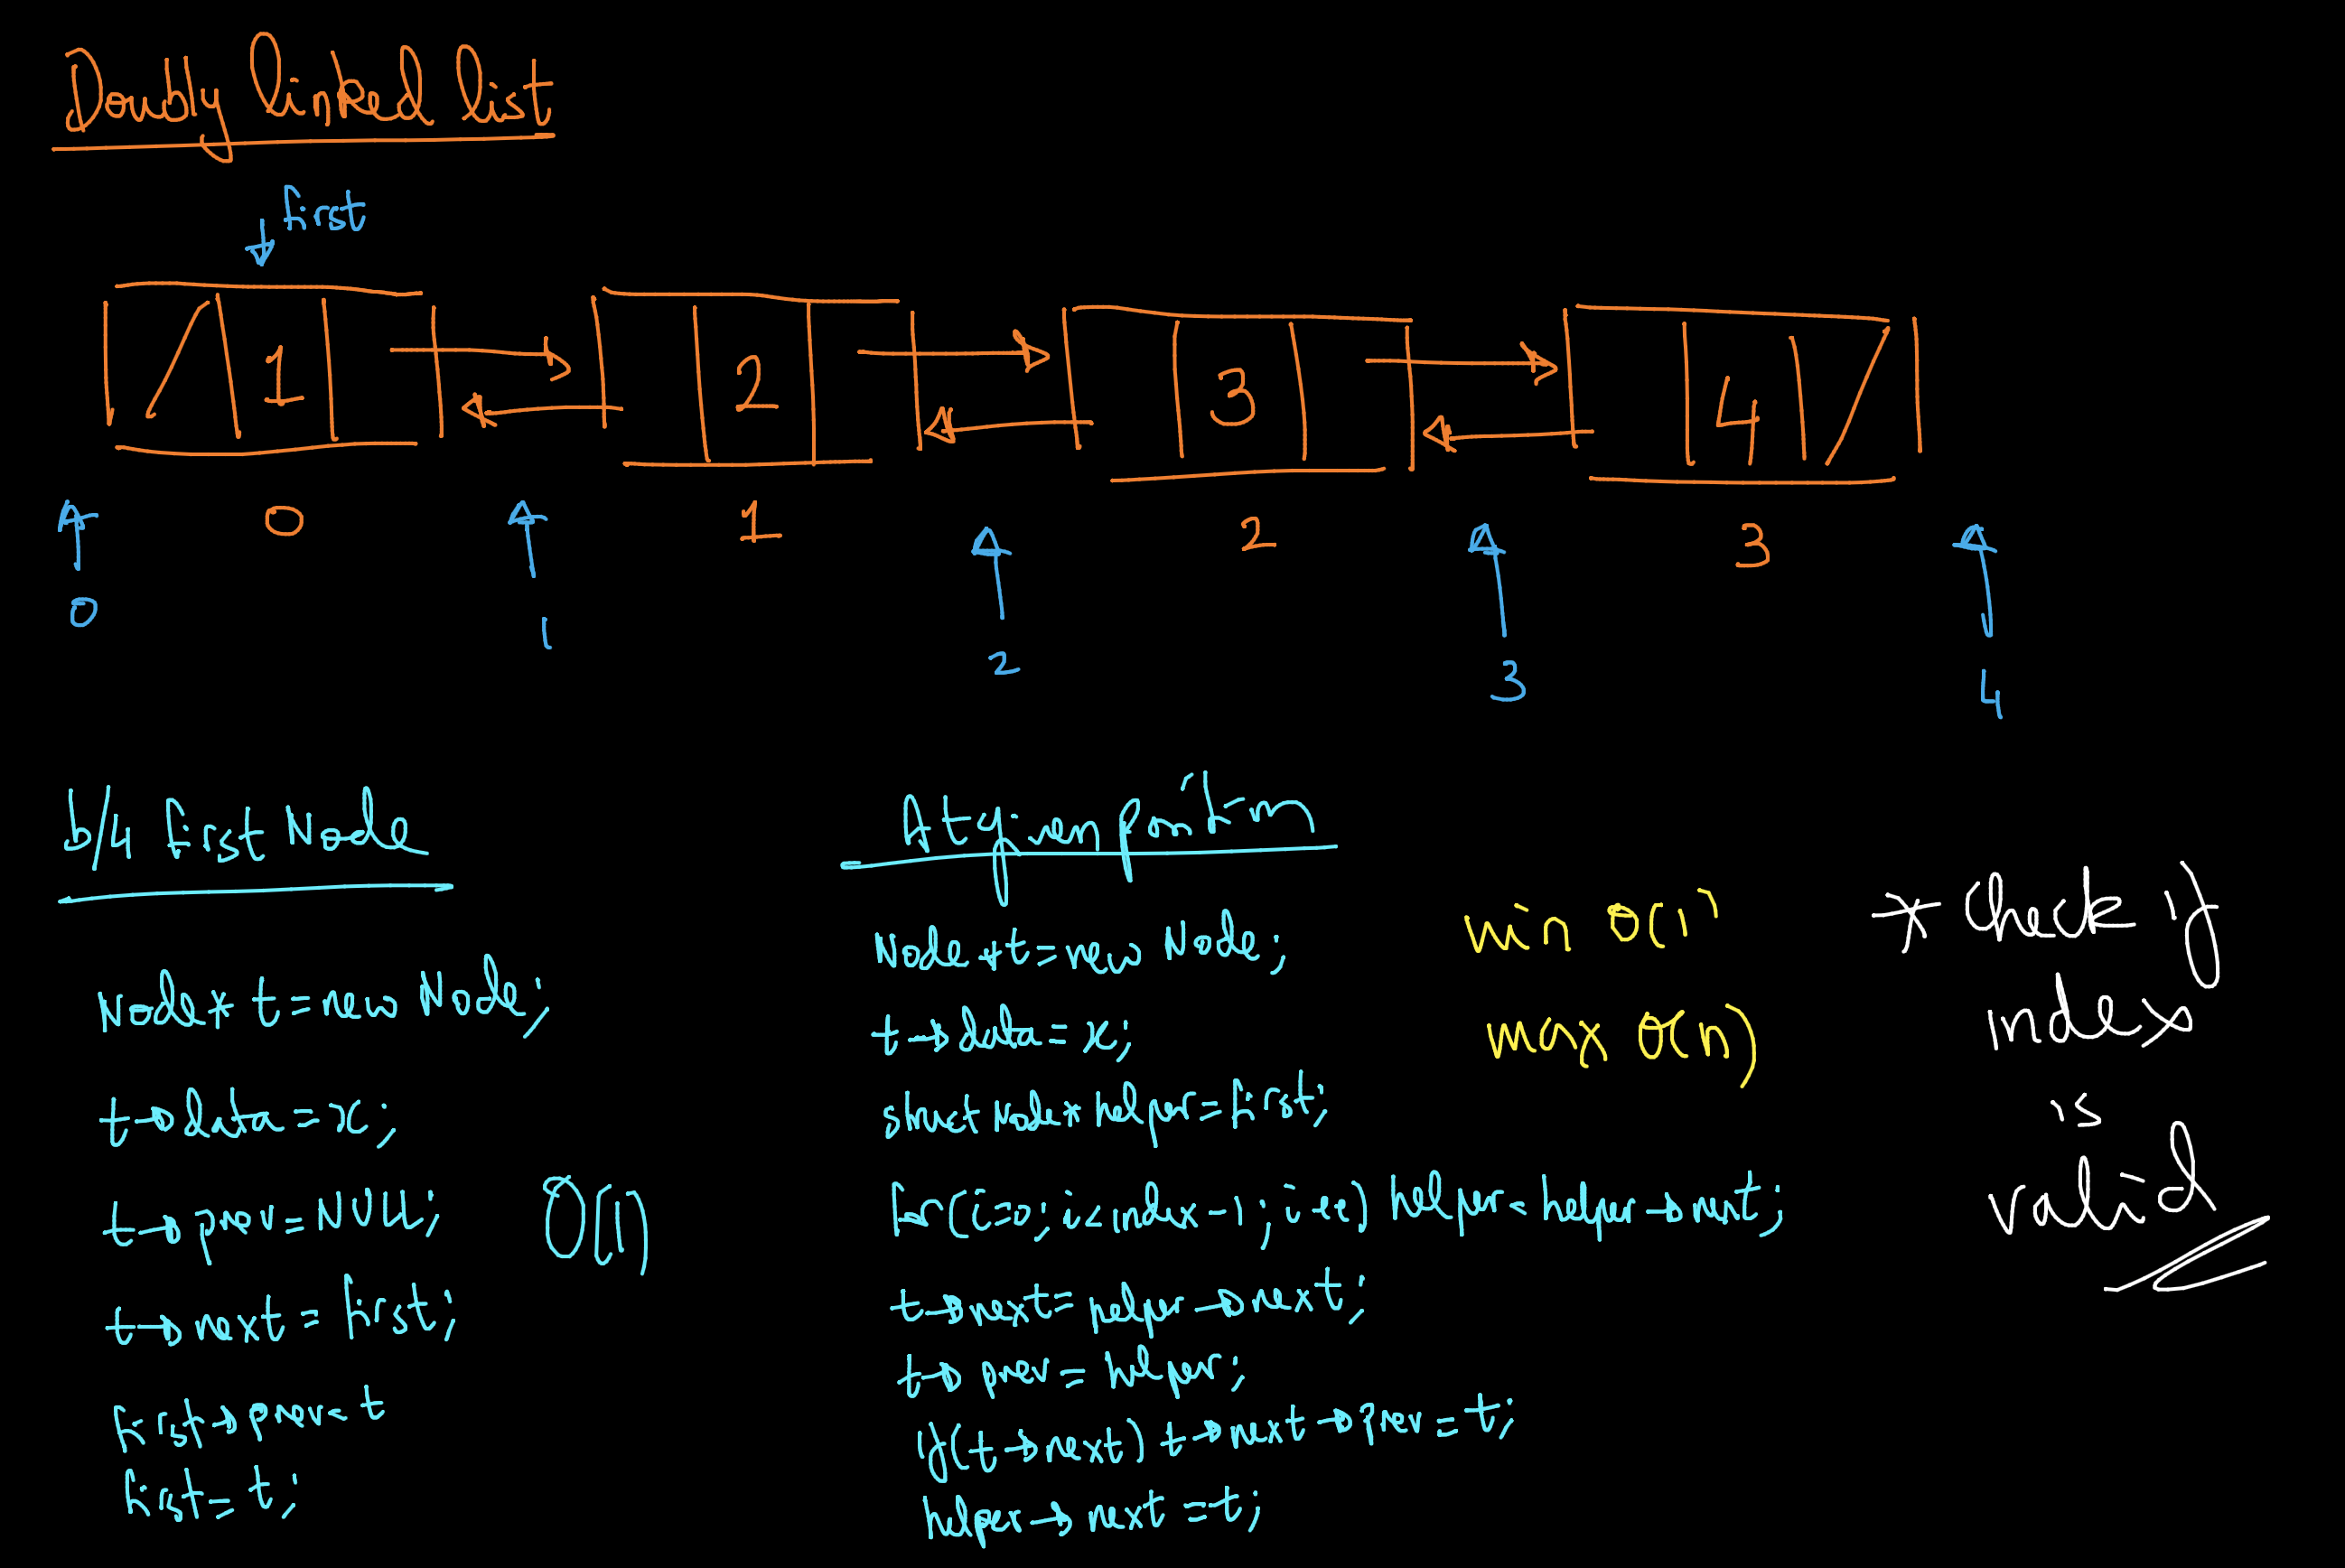 Doubly linked list
first
1 2 3 4
0 1 2 3
0 1 2 3 4
b/4 first Node
Node* t=new Node;
t→data=x;
t→prev=NULL;
O(1)
t→next=first;
first→prev=t
first=t;
At given position
Node *t=new Node;
t→data=x;
struct Node* helper=first;
for(i=0;i<index-1;i++) helper=helper→next;
t→next=helper→next;
t→prev=helper;
if(t→next) t→next→prev=t;
helper→next=t;
min O(1)
max O(n)
* Check if
index
is
valid